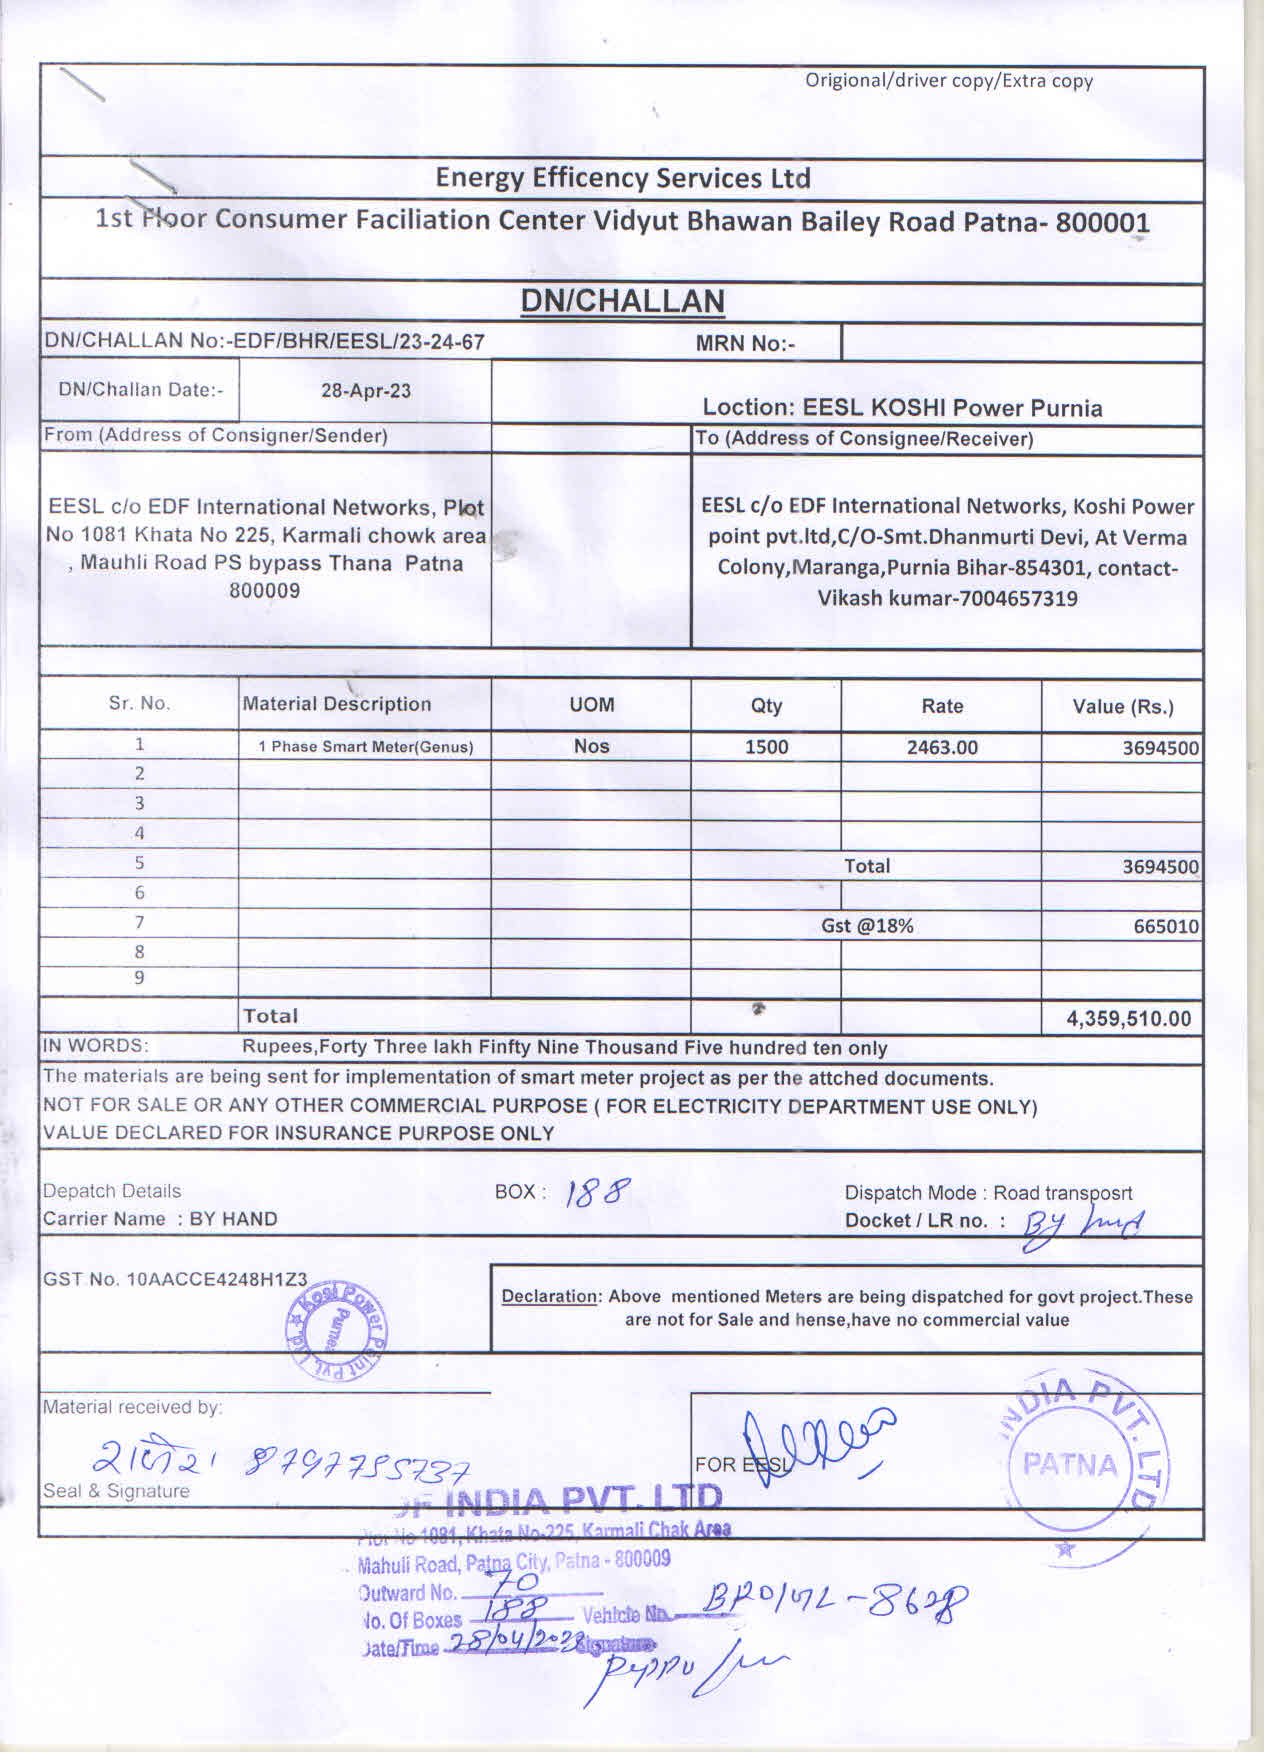 Origional/driver copy/Extra copy
Energy Efficency Services Ltd
1st Floor Consumer Faciliation Center Vidyut Bhawan Bailey Road Patna- 800001
DN/CHALLAN
DN/CHALLAN No:-EDF/BHR/EESL/23-24-67 MRN No:-
DN/Challan Date:- 28-Apr-23
Loction: EESL KOSHI Power Purnia
From (Address of Consigner/Sender) To (Address of Consignee/Receiver)
EESL c/o EDF International Networks, Plot
No 1081 Khata No 225, Karmali chowk area
, Mauhli Road PS bypass Thana Patna
800009
EESL c/o EDF International Networks, Koshi Power
point pvt.ltd,C/O-Smt.Dhanmurti Devi, At Verma
Colony,Maranga,Purnia Bihar-854301, contact-
Vikash kumar-7004657319
Sr. No. Material Description UOM Qty Rate Value (Rs.)
1 1 Phase Smart Meter(Genus) Nos 1500 2463.00 3694500
2
3
4
5 Total 3694500
6
7 Gst @18% 665010
8
9
Total 4,359,510.00
IN WORDS: Rupees,Forty Three lakh Finfty Nine Thousand Five hundred ten only
The materials are being sent for implementation of smart meter project as per the attched documents.
NOT FOR SALE OR ANY OTHER COMMERCIAL PURPOSE ( FOR ELECTRICITY DEPARTMENT USE ONLY)
VALUE DECLARED FOR INSURANCE PURPOSE ONLY
Depatch Details BOX : 188 Dispatch Mode : Road transposrt
Carrier Name : BY HAND Docket / LR no. : By hand
GST No. 10AACCE4248H1Z3
Kosi Power Point Pvt. Ltd.
Purnea
Declaration: Above mentioned Meters are being dispatched for govt project.These
are not for Sale and hense,have no commercial value
Material received by:
8797785737
FOR EESL
Seal & Signature
INDIA PVT. LTD
PATNA
INDIA PVT. LTD
Plot No 1081, Khata No-225, Karmali Chak Area
Mahuli Road, Patna City, Patna - 800009
Outward No. 70
No. Of Boxes 188 Vehicle No.
Date/Time 28/04/2023 Signature